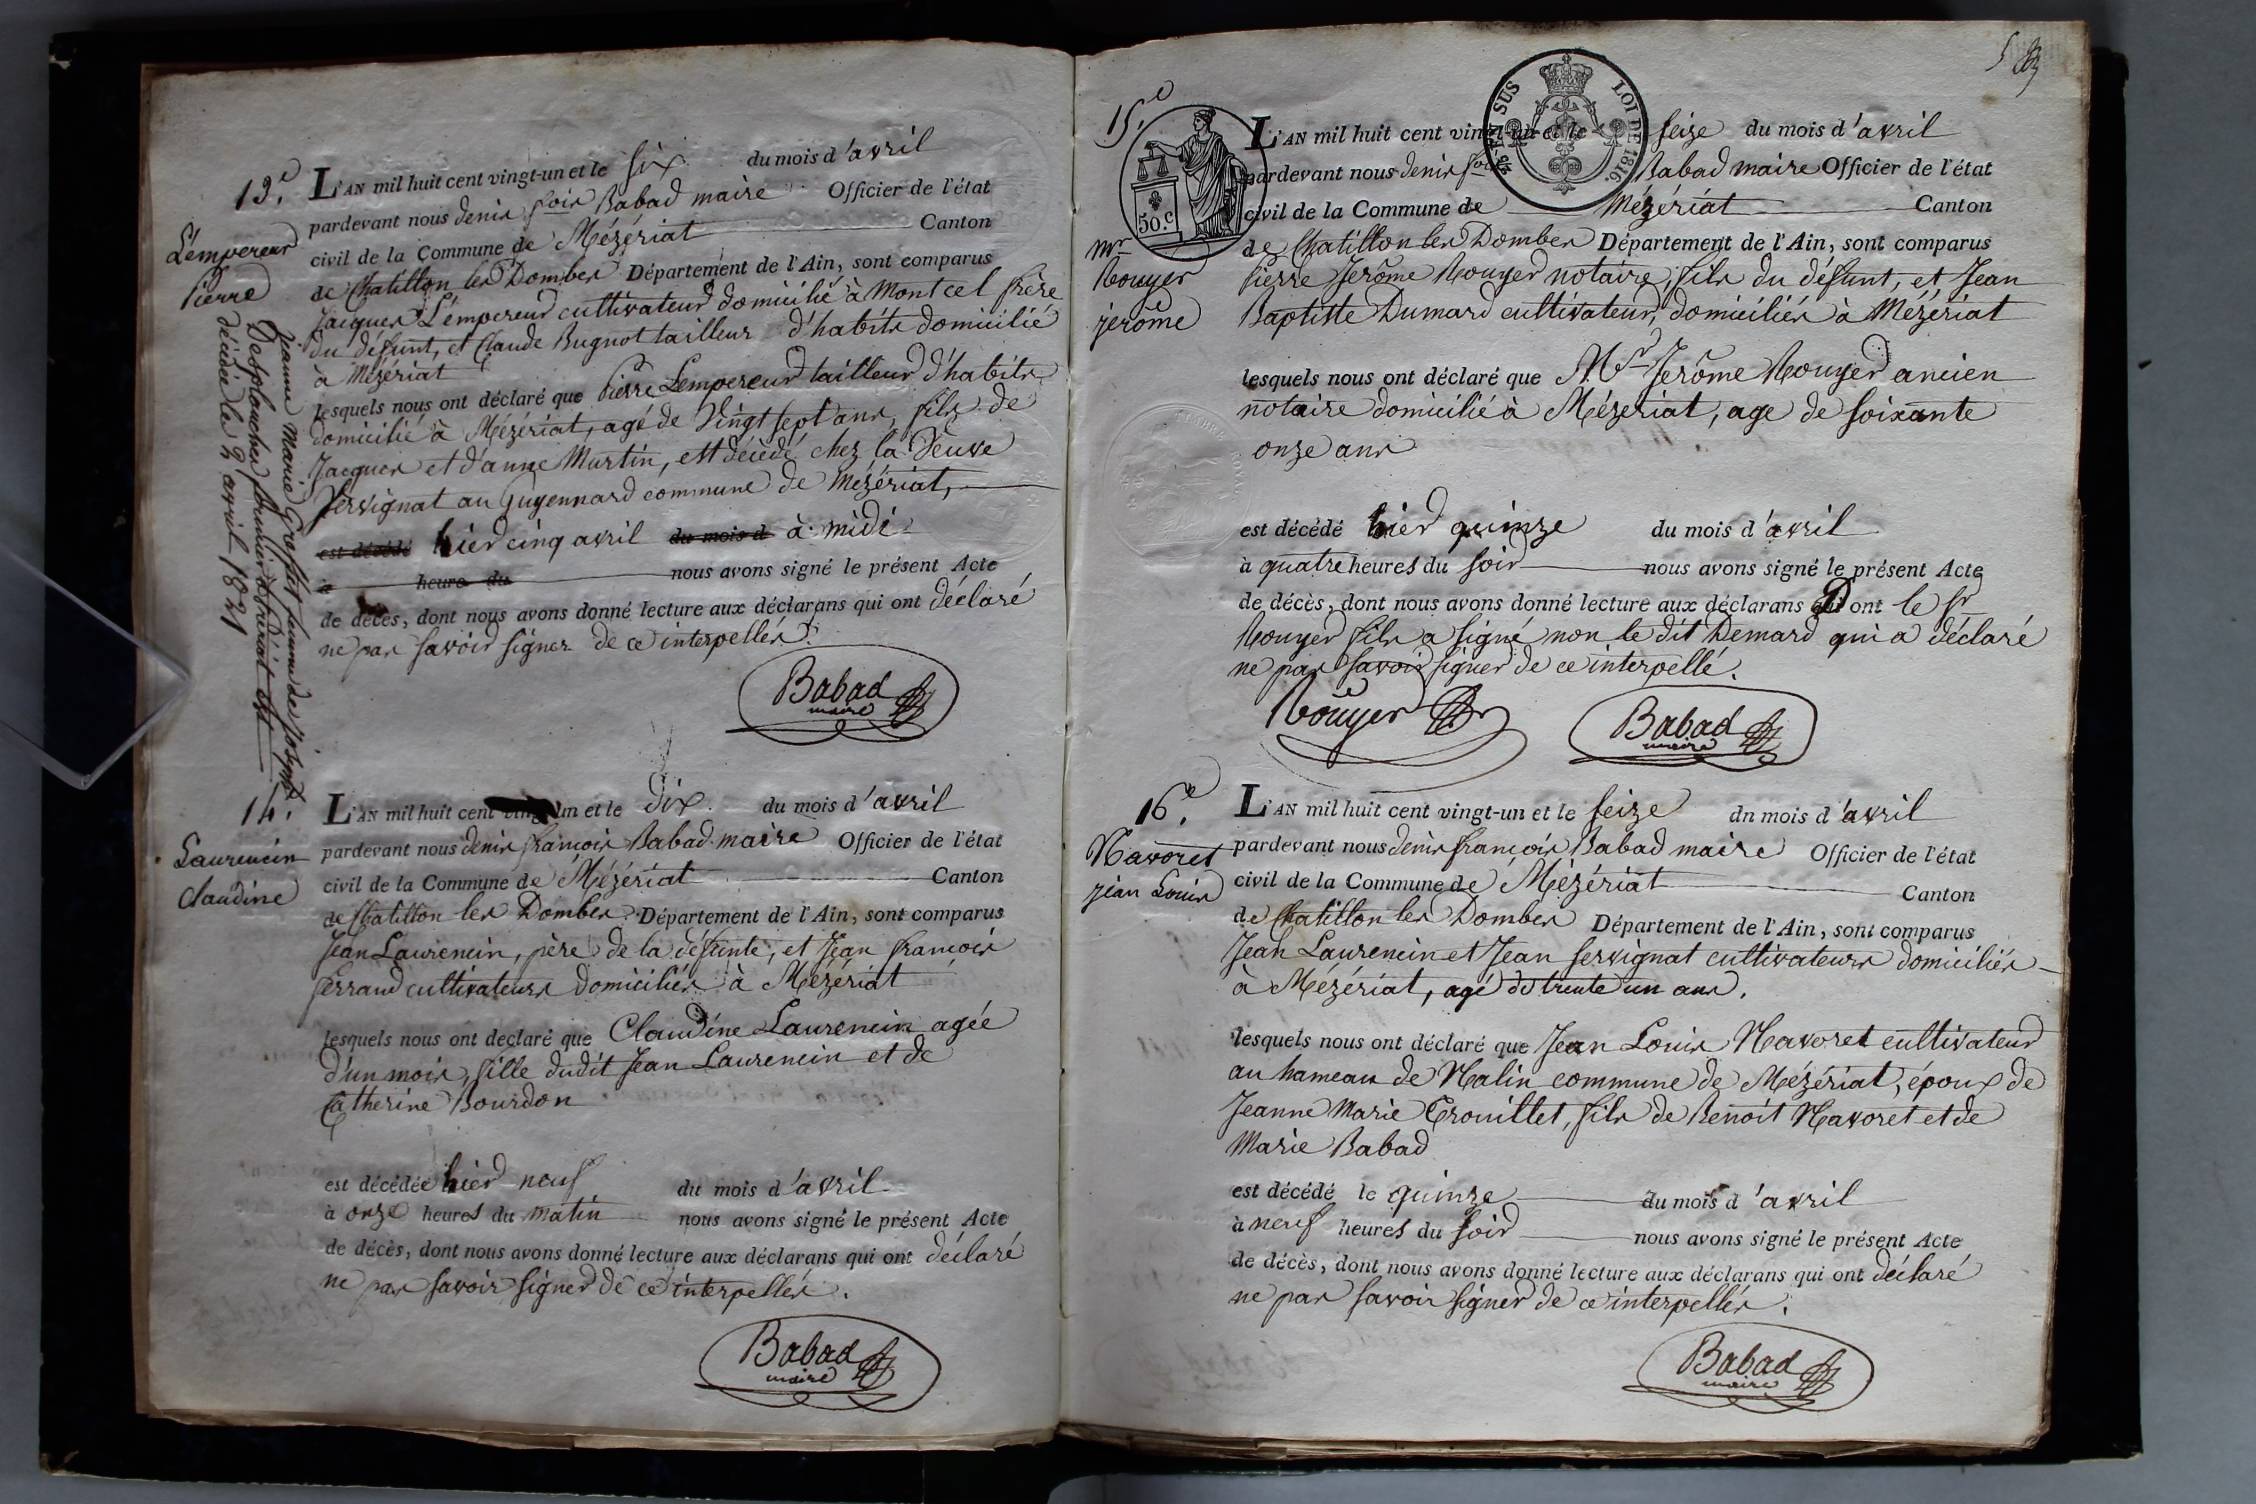 13.e
Lempereur
Pierre
Jeanne Marie Greffet femme de Joseph
Desplanches fermier à Mézériat est
décédée le 2 avril 1821
L'AN mil huit cent vingt-un et le six du mois d'avril
pardevant nous denis fois Babad maire Officier de l'état
civil de la Commune de Mézériat Canton
de Chatillon les Dombes Département de l'Ain, sont comparus
Jacques Lempereur cultivateur domicilié à Montcel frère
du défunt, et Claude Bugnot tailleur d'habits domicilié
à Mézériat
lesquels nous ont déclaré que Pierre Lempereur tailleur d'habits
domicilié à Mézériat, agé de Vingt sept ans, fils de
Jacques et d'anne Martin, est décédé chez la Veuve
Servignat au Guyennard commune de Mézériat,
est décédé hier cinq avril du mois d à midi
à heure du nous avons signé le présent Acte
de décès, dont nous avons donné lecture aux déclarans qui ont déclaré
ne pas savoir signer de ce interpellés.
Babad
maire
14.
Laurencin
Claudine
L'AN mil huit cent vingt-un et le dix du mois d'avril
pardevant nous denis françois Babad maire Officier de l'état
civil de la Commune de Mézériat Canton
de Chatillon les Dombes Département de l'Ain, sont comparus
Jean Laurencin, père de la défunte, et Jean françois
ferraud cultivateurs domiciliés à Mézériat
lesquels nous ont déclaré que Claudine Laurencin agée
d'un mois, fille dudit Jean Laurencin et de
Catherine Bourdon
est décédée hier neuf du mois d'avril
à onze heures du matin nous avons signé le présent Acte
de décès, dont nous avons donné lecture aux déclarans qui ont déclaré
ne pas savoir signer de ce interpellés.
Babad
maire
15.e
50.c
EN SUS
LOI DE 1816.
mr
Rouyer
jerôme
L'AN mil huit cent vingt-un et le seize du mois d'avril
pardevant nous denis fois Babad maire Officier de l'état
civil de la Commune de Mézériat Canton
de Chatillon les Dombes Département de l'Ain, sont comparus
Pierre Jerôme Rouyer notaire, fils du défunt, et Jean
Baptiste Dumard cultivateur, domiciliés à Mézériat
lesquels nous ont déclaré que Mr Jerôme Rouyer ancien
notaire domicilié à Mézeriat, age de soixante
onze ans
est décédé hier quinze du mois d'avril
à quatre heures du soir nous avons signé le présent Acte
de décès, dont nous avons donné lecture aux déclarans ont le sr
Rouyer fils a signé non le dit Demard qui a déclaré
ne pas savoir signer de ce interpellé.
Rouyer
Babad
maire
16.e
Navoret
jean Louis
L'AN mil huit cent vingt-un et le seize dn mois d'avril
pardevant nous denis françois Babad maire Officier de l'état
civil de la Commune de Mézériat Canton
de Chatillon les Dombes Département de l'Ain, sont comparus
Jean Laurencin et Jean servignat cultivateurs domiciliés
à Mézériat, agé de trente un ans.
lesquels nous ont déclaré que Jean Louis Navoret cultivateur
au hameau de Nalin commune de Mézériat, époux de
Jeanne Marie Crouillet, fils de Benoit Navoret et de
Marie Babad
est décédé le quinze du mois d'avril
à neuf heures du soir nous avons signé le présent Acte
de décès, dont nous avons donné lecture aux déclarans qui ont déclaré
ne pas savoir signer de ce interpellés.
Babad
maire